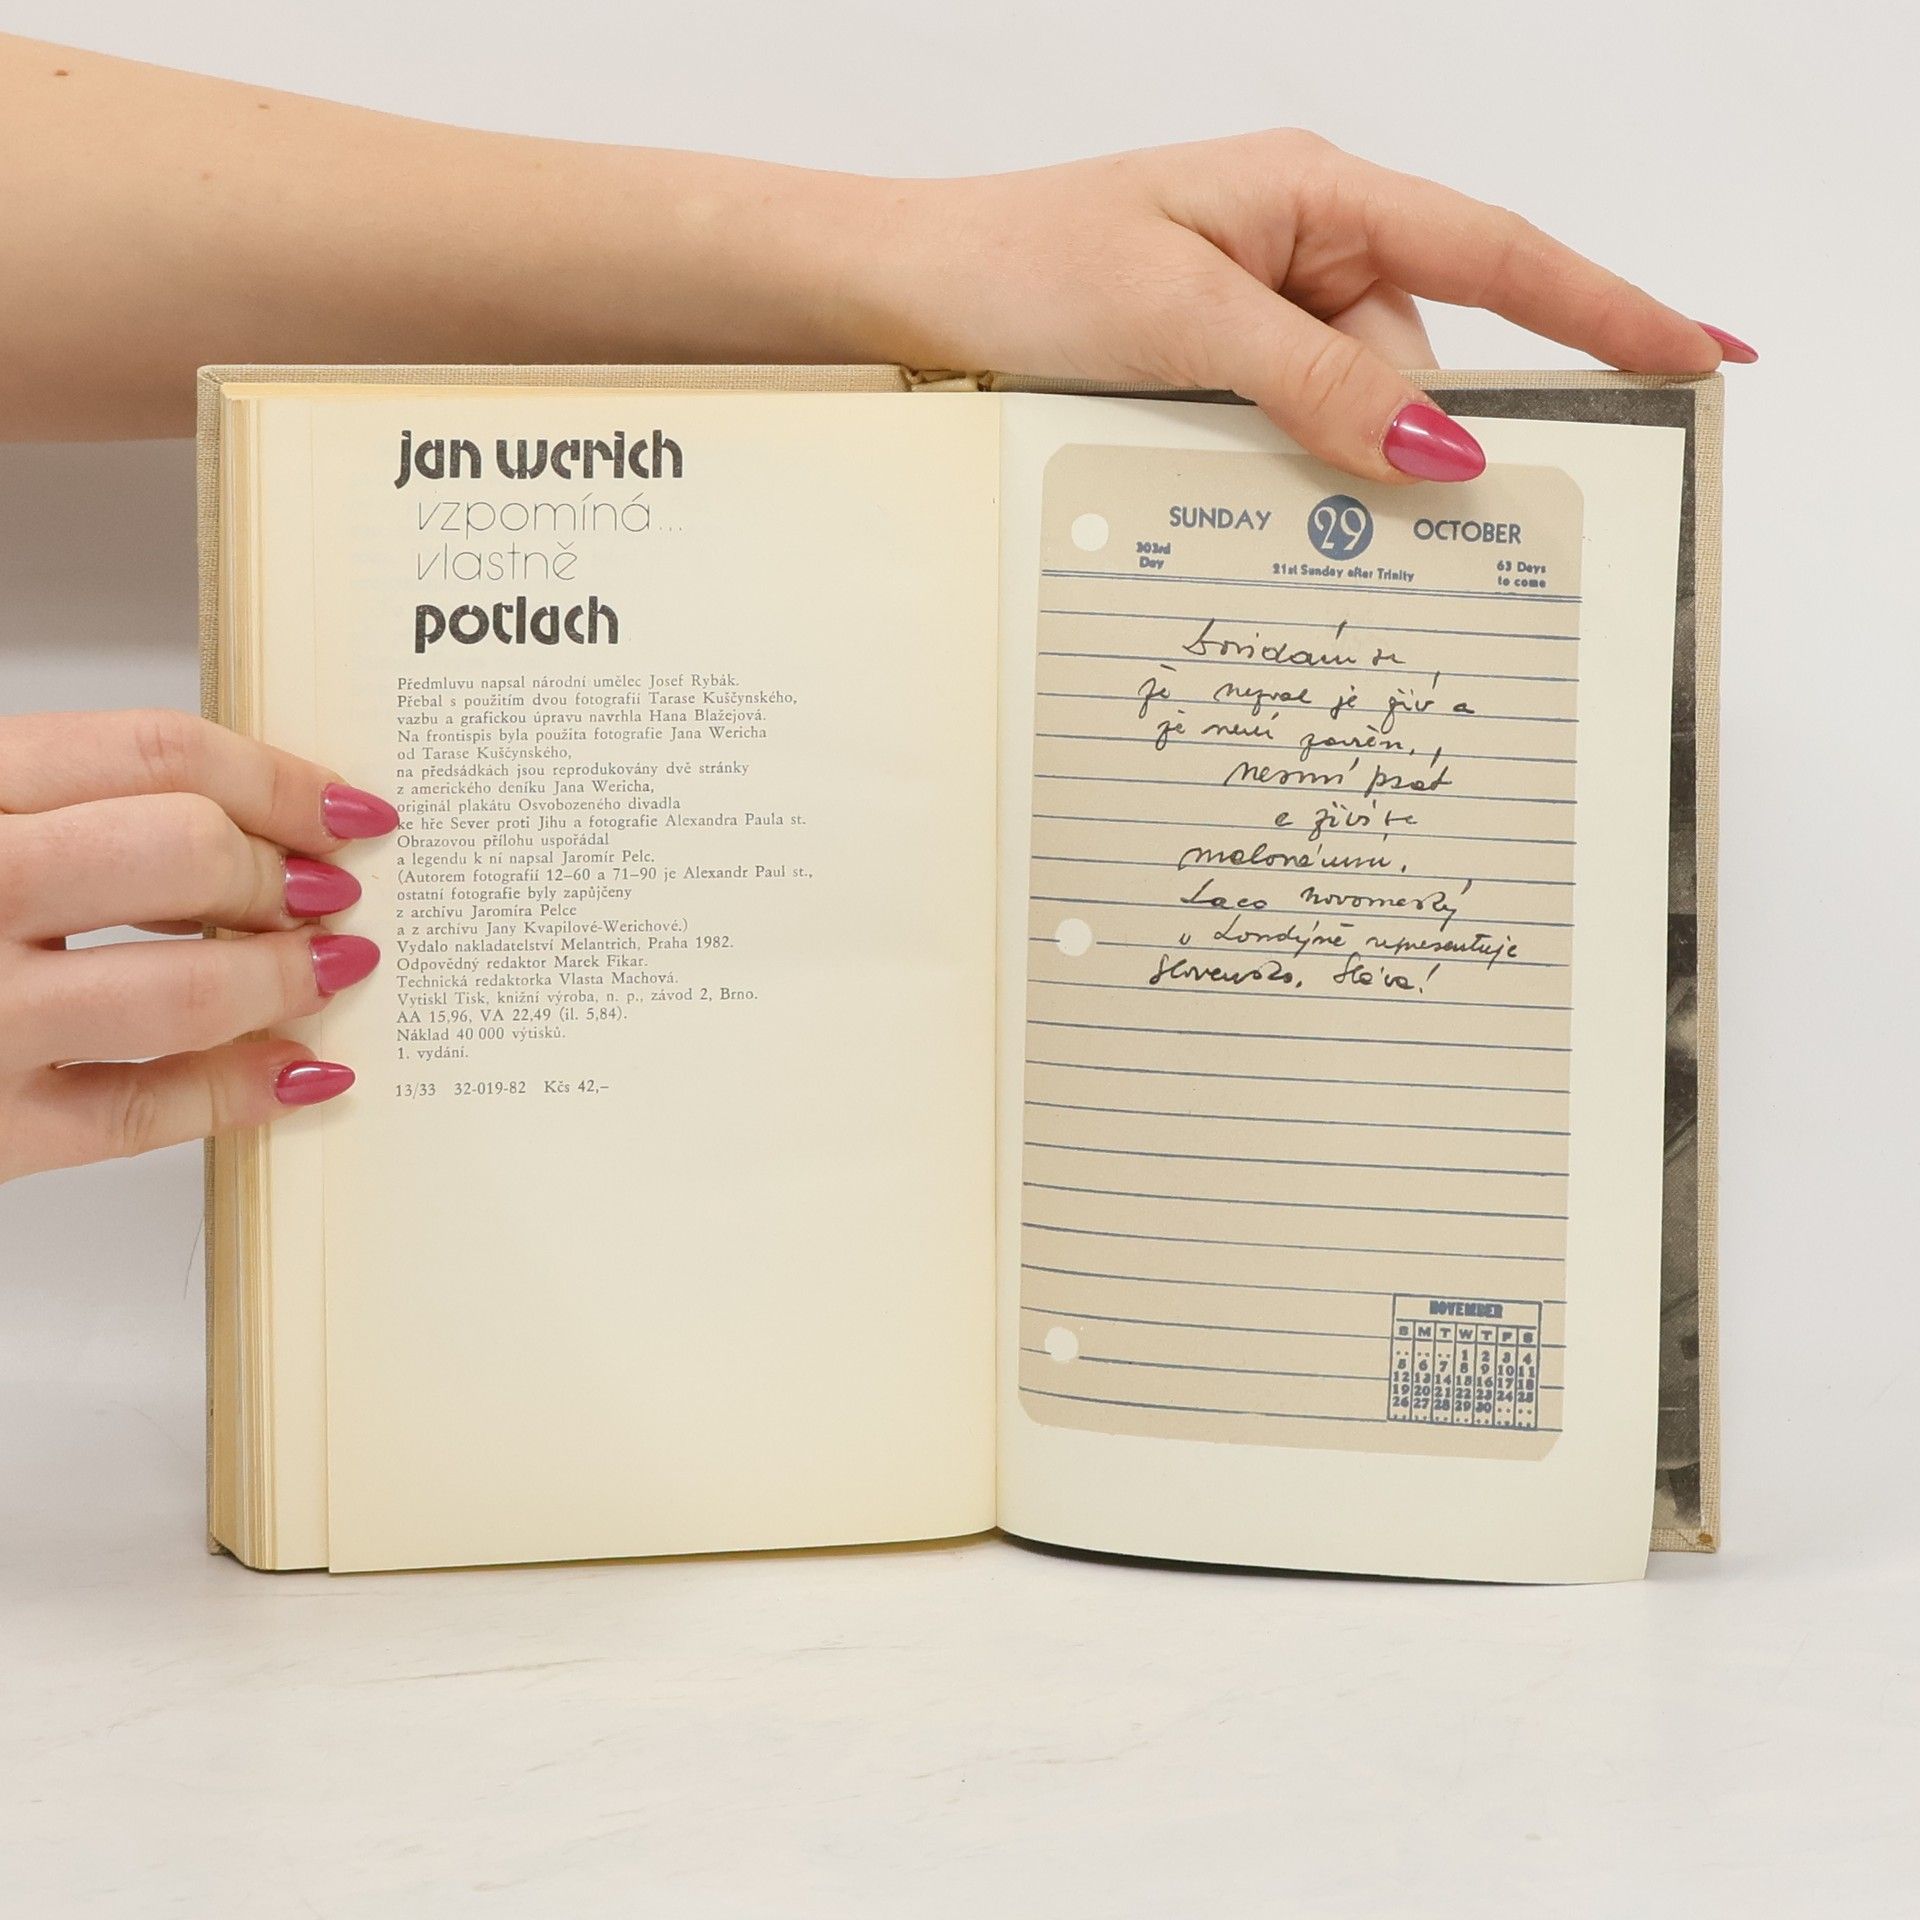 jan werich
vzpomíná...
vlastně
potlach
Předmluvu napsal národní umělec Josef Rybák.
Přebal s použitím dvou fotografií Tarase Kuščynského,
vazbu a grafickou úpravu navrhla Hana Blažejová.
Na frontispis byla použita fotografie Jana Wericha
od Tarase Kuščynského,
na předsádkách jsou reprodukovány dvě stránky
z amerického deníku Jana Wericha,
originál plakátu Osvobozeného divadla
ke hře Sever proti Jihu a fotografie Alexandra Paula st.
Obrazovou přílohu uspořádal
a legendu k ní napsal Jaromír Pelc.
(Autorem fotografií 12–60 a 71–90 je Alexandr Paul st.,
ostatní fotografie byly zapůjčeny
z archívu Jaromíra Pelce
a z archívu Jany Kvapilové-Werichové.)
Vydalo nakladatelství Melantrich, Praha 1982.
Odpovědný redaktor Marek Fikar.
Technická redaktorka Vlasta Machová.
Vytiskl Tisk, knižní výroba, n. p., závod 2, Brno.
AA 15,96, VA 22,49 (il. 5,84).
Náklad 40 000 výtisků.
1. vydání.
13/33 32-019-82 Kčs 42,–
SUNDAY 29 OCTOBER
302rd Day 21st Sunday after Trinity 63 Days to come
Dovídám se,
že Nezval je živ a
že není zavřen,
nesmí psát
a živí se
malováním.
Laco Novomeský
v Londýně representuje
Slovensko. Sláva!
NOVEMBER
S M T W T F S
.. .. .. 1 2 3 4
5 6 7 8 9 10 11
12 13 14 15 16 17 18
19 20 21 22 23 24 25
26 27 28 29 30 .. ..